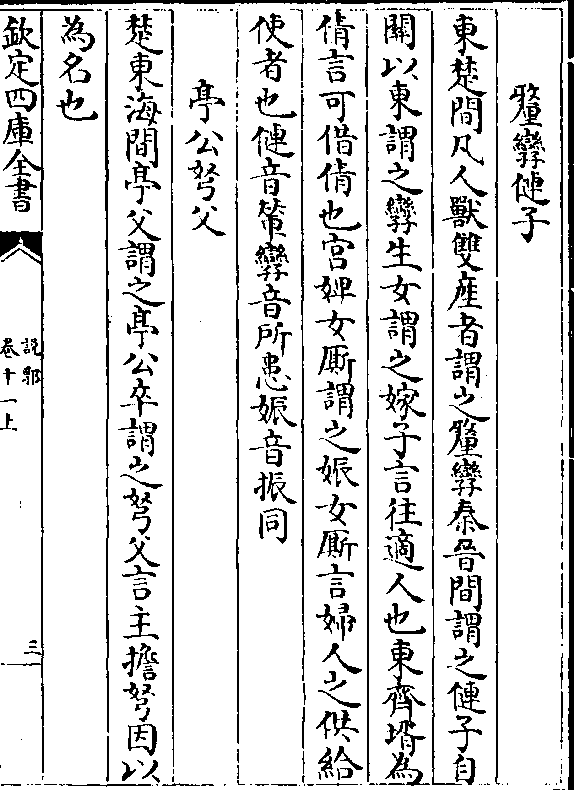 釐孿僆子
東楚間凡人獸雙産者謂之釐孿秦晉間謂之僆子自
關以東謂之孿生女謂之嫁子言往適人也東齊壻為
倩言可借倩也官婢女厮謂之娠女厮言婦人之供給
使者也僆音輦孿音所患娠音振同
亭公弩父
楚東海間亭父謂之亭公卒謂之弩父言主擔弩因以
為名也
欽定四庫全書
說郛
卷十一上
三